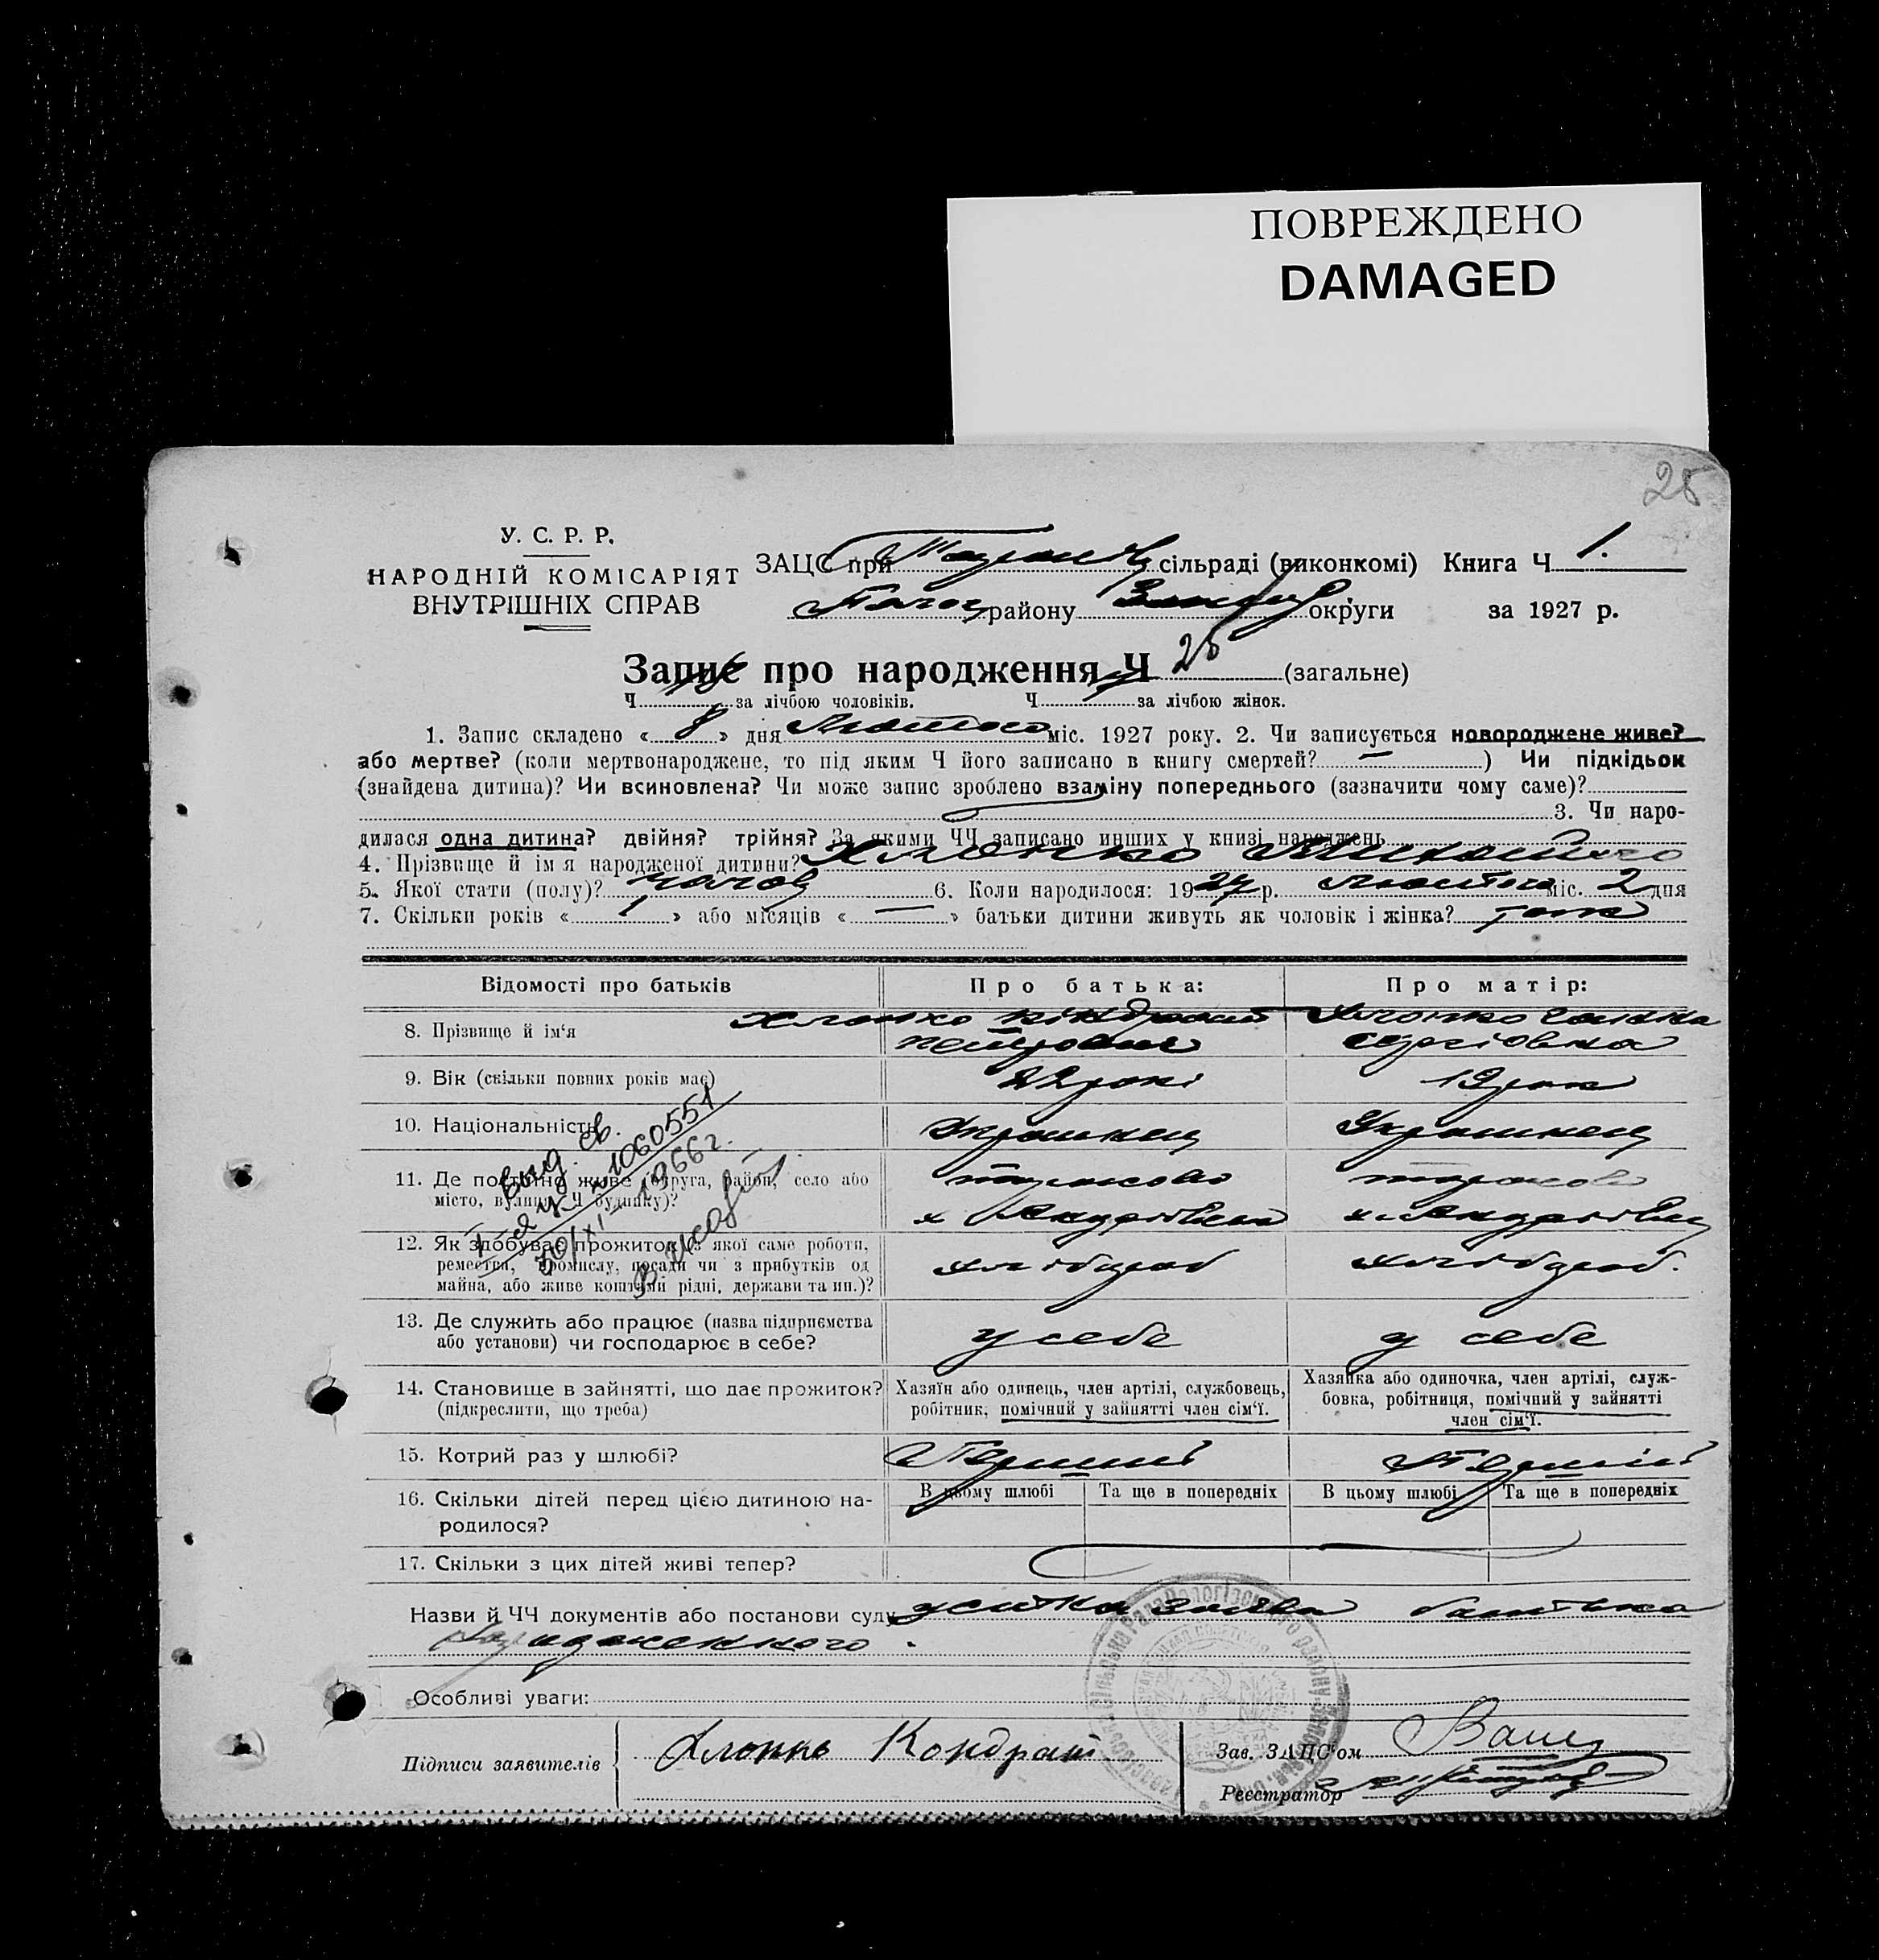 ПОВРЕЖДЕНО
DAMAGED
25
У. С. Р. Р.
НАРОДНІЙ КОМІСАРІЯТ
ВНУТРІШНІХ СПРАВ
ЗАЦС при сільраді (виконкомі) Книга Ч 1.
району округи за 1927 р.
Запис про народження Ч 25 (загальне)
Ч за лічбою чоловіків. Ч за лічбою жінок.
1. Запис складено « 8 » дня Лютого міс. 1927 року. 2. Чи записується новороджене живе?
або мертве? (коли мертвонароджене, то під яким Ч його записано в книгу смертей? — ) Чи підкідьок
(знайдена дитина)? Чи всиновлена? Чи може запис зроблено взаміну попереднього (зазначити чому саме)?
3. Чи наро-
дилася одна дитина? двійня? трійня? За якими ЧЧ записано инших у книзі народжень
4. Прізвище й ім я народженої дитини? Хлопко
5. Якої стати (полу)? чолов 6. Коли народилося: 1927 р. Лютого міс. 2 дня
7. Скільки років « 1 » або місяців « — » батьки дитини живуть як чоловік і жінка? так
Відомості про батьків Про батька: Про матір:
8. Прізвище й ім‘я Хлопко Кіндрат Хлопко
Петрович Сергіовна
9. Вік (скільки повних років має) 22 рокі 19 рок
10. Національність Украинец Украинец
11. Де постійно живе (округа, район, село або
місто, вулиця, Ч будинку)?
12. Як здобуває прожиток (з якої саме роботи, хлібороб хлібороб.
ремества, промислу, посади чи з прибутків од
майна, або живе коштами рідні, держави та ин.)?
Выд. св.
1060551
1966 г.
13. Де служить або працює (назва підприємства у себе у себе
або установи) чи господарює в себе?
14. Становище в зайнятті, що дає прожиток? Хазяїн або одинець, член артілі, службовець, Хазяйка або одиночка, член артілі, служ-
(підкреслити, що треба) робітник, помічний у зайнятті член сім‘ї. бовка, робітниця, помічний у зайнятті
член сім‘ї.
15. Котрий раз у шлюбі? Перший Перший
16. Скільки дітей перед цією дитиною на- В цьому шлюбі Та ще в попередніх В цьому шлюбі Та ще в попередніх
родилося?
17. Скільки з цих дітей живі тепер?
Назви й ЧЧ документів або постанови суду устна заява батька
Особливі уваги:
Підписи заявителів Хлопко Кондрат
Зав. ЗАЦС'ом
Реєстратор